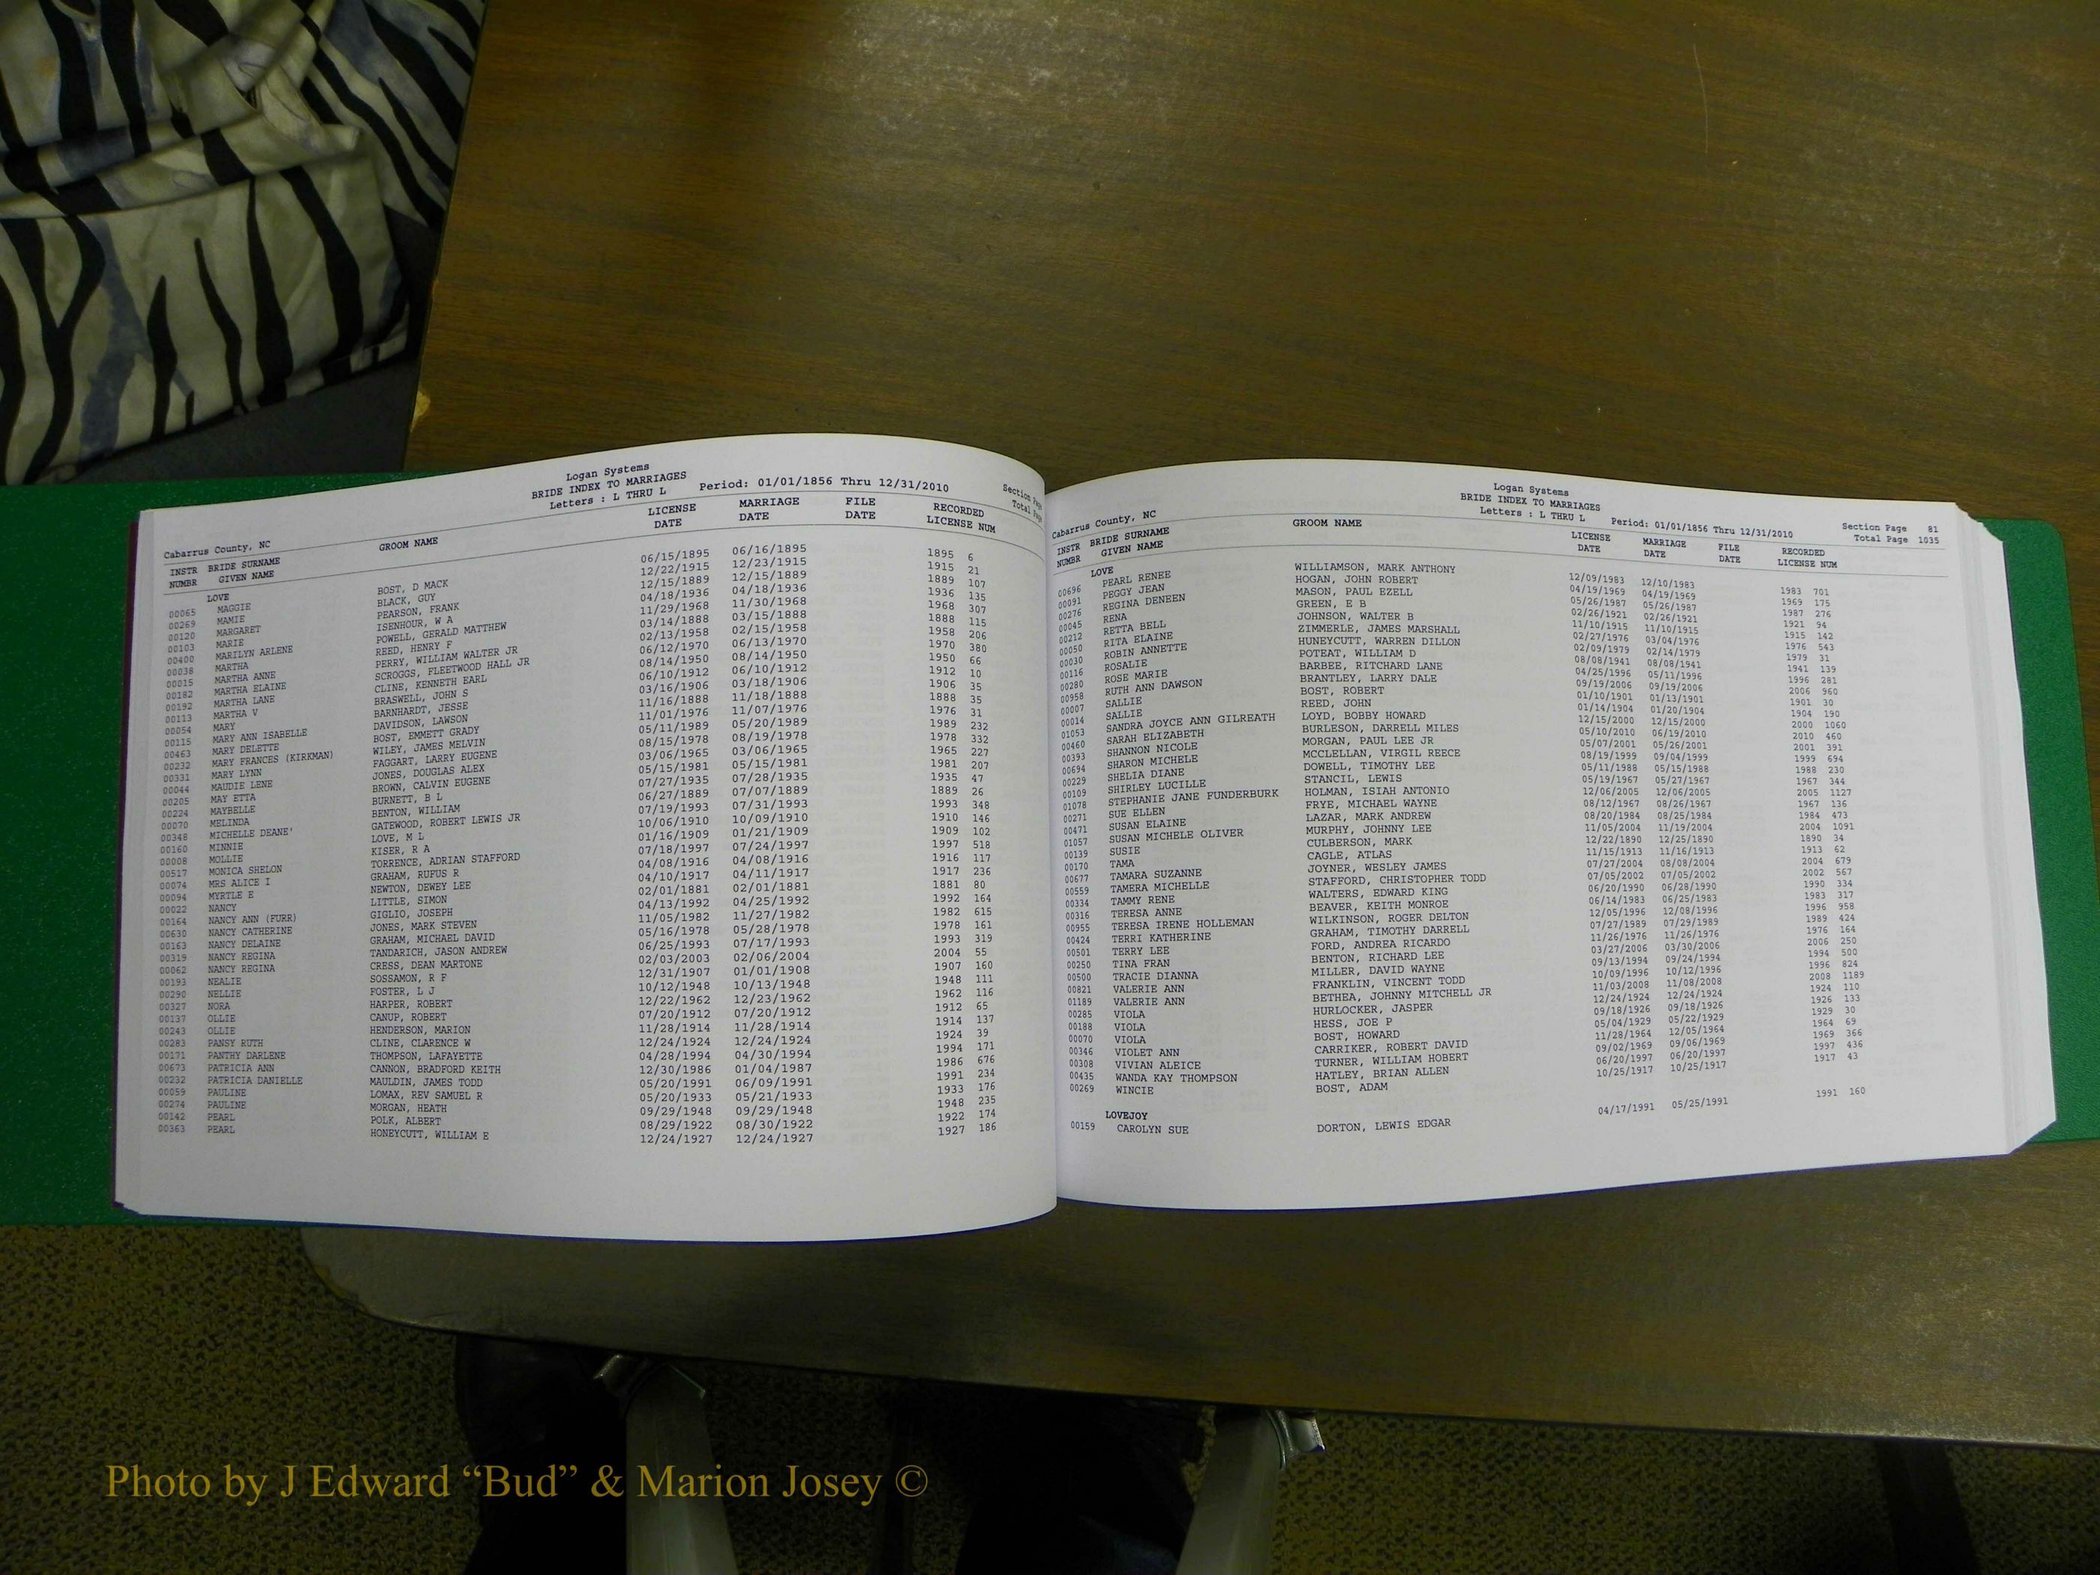 Logan Systems
BRIDE INDEX TO MARRIAGES
Letters : L THRU L Period: 01/01/1856 Thru 12/31/2010
Section Page
Total Page
Cabarrus County, NC
INSTR BRIDE SURNAME GROOM NAME LICENSE MARRIAGE FILE RECORDED
NUMBR GIVEN NAME DATE DATE DATE LICENSE NUM
LOVE
00065 MAGGIE BOST, D MACK 06/15/1895 06/16/1895 1895 6
00269 MAMIE BLACK, GUY 12/22/1915 12/23/1915 1915 21
00120 MARGARET PEARSON, FRANK 12/15/1889 12/15/1889 1889 107
00103 MARIE ISENHOUR, W A 04/18/1936 04/18/1936 1936 135
00400 MARILYN ARLENE POWELL, GERALD MATTHEW 11/29/1968 11/30/1968 1968 307
00038 MARTHA REED, HENRY F 03/14/1888 03/15/1888 1888 115
00015 MARTHA ANNE PERRY, WILLIAM WALTER JR 02/13/1958 02/15/1958 1958 206
00182 MARTHA ELAINE SCROGGS, FLEETWOOD HALL JR 06/12/1970 06/13/1970 1970 380
00192 MARTHA LANE CLINE, KENNETH EARL 08/14/1950 08/14/1950 1950 66
00113 MARTHA V BRASWELL, JOHN S 06/10/1912 06/10/1912 1912 10
00054 MARY BARNHARDT, JESSE 03/16/1906 03/18/1906 1906 35
00115 MARY ANN ISABELLE DAVIDSON, LAWSON 11/16/1888 11/18/1888 1888 35
00463 MARY DELETTE BOST, EMMETT GRADY 11/01/1976 11/07/1976 1976 31
00232 MARY FRANCES (KIRKMAN) WILEY, JAMES MELVIN 05/11/1989 05/20/1989 1989 232
00331 MARY LYNN FAGGART, LARRY EUGENE 08/15/1978 08/19/1978 1978 332
00044 MAUDIE LENE JONES, DOUGLAS ALEX 03/06/1965 03/06/1965 1965 227
00205 MAY ETTA BROWN, CALVIN EUGENE 05/15/1981 05/15/1981 1981 207
00224 MAYBELLE BURNETT, B L 07/27/1935 07/28/1935 1935 47
00070 MELINDA BENTON, WILLIAM 06/27/1889 07/07/1889 1889 26
00348 MICHELLE DEANE' GATEWOOD, ROBERT LEWIS JR 07/19/1993 07/31/1993 1993 348
00160 MINNIE LOVE, M L 10/06/1910 10/09/1910 1910 146
00008 MOLLIE KISER, R A 01/16/1909 01/21/1909 1909 102
00517 MONICA SHELON TORRENCE, ADRIAN STAFFORD 07/18/1997 07/24/1997 1997 518
00074 MRS ALICE I GRAHAM, RUFUS R 04/08/1916 04/08/1916 1916 117
00094 MYRTLE E NEWTON, DEWEY LEE 04/10/1917 04/11/1917 1917 236
00022 NANCY LITTLE, SIMON 02/01/1881 02/01/1881 1881 80
00164 NANCY ANN (FURR) GIGLIO, JOSEPH 04/13/1992 04/25/1992 1992 164
00630 NANCY CATHERINE JONES, MARK STEVEN 11/05/1982 11/27/1982 1982 615
00163 NANCY DELAINE GRAHAM, MICHAEL DAVID 05/16/1978 05/28/1978 1978 161
00319 NANCY REGINA TANDARICH, JASON ANDREW 06/25/1993 07/17/1993 1993 319
00062 NANCY REGINA CRESS, DEAN MARTONE 02/03/2003 02/06/2004 2004 55
00193 NEALIE SOSSAMON, R F 12/31/1907 01/01/1908 1907 160
00290 NELLIE FOSTER, L J 10/12/1948 10/13/1948 1948 111
00327 NORA HARPER, ROBERT 12/22/1962 12/23/1962 1962 116
00137 OLLIE CANUP, ROBERT 07/20/1912 07/20/1912 1912 65
00243 OLLIE HENDERSON, MARION 11/28/1914 11/28/1914 1914 137
00283 PANSY RUTH CLINE, CLARENCE W 12/24/1924 12/24/1924 1924 39
00171 PANTHY DARLENE THOMPSON, LAFAYETTE 04/28/1994 04/30/1994 1994 171
00673 PATRICIA ANN CANNON, BRADFORD KEITH 12/30/1986 01/04/1987 1986 676
00232 PATRICIA DANIELLE MAULDIN, JAMES TODD 05/20/1991 06/09/1991 1991 234
00059 PAULINE LOMAX, REV SAMUEL R 05/20/1933 05/21/1933 1933 176
00274 PAULINE MORGAN, HEATH 09/29/1948 09/29/1948 1948 235
00142 PEARL POLK, ALBERT 08/29/1922 08/30/1922 1922 174
00363 PEARL HONEYCUTT, WILLIAM E 12/24/1927 12/24/1927 1927 186
Logan Systems
BRIDE INDEX TO MARRIAGES
Letters : L THRU L Period: 01/01/1856 Thru 12/31/2010
Section Page 81
Total Page 1035
Cabarrus County, NC
INSTR BRIDE SURNAME GROOM NAME LICENSE MARRIAGE FILE RECORDED
NUMBR GIVEN NAME DATE DATE DATE LICENSE NUM
LOVE
00696 PEARL RENEE WILLIAMSON, MARK ANTHONY 12/09/1983 12/10/1983 1983 701
00091 PEGGY JEAN HOGAN, JOHN ROBERT 04/19/1969 04/19/1969 1969 175
00276 REGINA DENEEN MASON, PAUL EZELL 05/26/1987 05/26/1987 1987 276
00045 RENA GREEN, E B 02/26/1921 02/26/1921 1921 94
00212 RETTA BELL JOHNSON, WALTER B 11/10/1915 11/10/1915 1915 142
00050 RITA ELAINE ZIMMERLE, JAMES MARSHALL 02/27/1976 03/04/1976 1976 543
00030 ROBIN ANNETTE HUNEYCUTT, WARREN DILLON 02/09/1979 02/14/1979 1979 31
00116 ROSALIE POTEAT, WILLIAM D 08/08/1941 08/08/1941 1941 139
00280 ROSE MARIE BARBEE, RITCHARD LANE 04/25/1996 05/11/1996 1996 281
00958 RUTH ANN DAWSON BRANTLEY, LARRY DALE 09/19/2006 09/19/2006 2006 960
00007 SALLIE BOST, ROBERT 01/10/1901 01/13/1901 1901 30
00014 SALLIE REED, JOHN 01/14/1904 01/20/1904 1904 190
01053 SANDRA JOYCE ANN GILREATH LOYD, BOBBY HOWARD 12/15/2000 12/15/2000 2000 1060
00460 SARAH ELIZABETH BURLESON, DARRELL MILES 05/10/2010 06/19/2010 2010 460
00393 SHANNON NICOLE MORGAN, PAUL LEE JR 05/07/2001 05/26/2001 2001 391
00694 SHARON MICHELE MCCLELLAN, VIRGIL REECE 08/19/1999 09/04/1999 1999 694
00229 SHELIA DIANE DOWELL, TIMOTHY LEE 05/11/1988 05/15/1988 1988 230
00109 SHIRLEY LUCILLE STANCIL, LEWIS 05/19/1967 05/27/1967 1967 344
01078 STEPHANIE JANE FUNDERBURK HOLMAN, ISIAH ANTONIO 12/06/2005 12/06/2005 2005 1127
00271 SUE ELLEN FRYE, MICHAEL WAYNE 08/12/1967 08/26/1967 1967 136
00471 SUSAN ELAINE LAZAR, MARK ANDREW 08/20/1984 08/25/1984 1984 473
01057 SUSAN MICHELE OLIVER MURPHY, JOHNNY LEE 11/05/2004 11/19/2004 2004 1091
00139 SUSIE CULBERSON, MARK 12/22/1890 12/25/1890 1890 34
00170 TAMA CAGLE, ATLAS 11/15/1913 11/16/1913 1913 62
00677 TAMARA SUZANNE JOYNER, WESLEY JAMES 07/27/2004 08/08/2004 2004 679
00559 TAMERA MICHELLE STAFFORD, CHRISTOPHER TODD 07/05/2002 07/05/2002 2002 567
00334 TAMMY RENE WALTERS, EDWARD KING 06/20/1990 06/28/1990 1990 334
00316 TERESA ANNE BEAVER, KEITH MONROE 06/14/1983 06/25/1983 1983 317
00955 TERESA IRENE HOLLEMAN WILKINSON, ROGER DELTON 12/05/1996 12/08/1996 1996 958
00424 TERRI KATHERINE GRAHAM, TIMOTHY DARRELL 07/27/1989 07/29/1989 1989 424
00501 TERRY LEE FORD, ANDREA RICARDO 11/26/1976 11/26/1976 1976 164
00250 TINA FRAN BENTON, RICHARD LEE 03/27/2006 03/30/2006 2006 250
00500 TRACIE DIANNA MILLER, DAVID WAYNE 09/13/1994 09/24/1994 1994 500
00821 VALERIE ANN FRANKLIN, VINCENT TODD 10/09/1996 10/12/1996 1996 824
01189 VALERIE ANN BETHEA, JOHNNY MITCHELL JR 11/03/2008 11/08/2008 2008 1189
00285 VIOLA HURLOCKER, JASPER 12/24/1924 12/24/1924 1924 110
00188 VIOLA HESS, JOE P 09/18/1926 09/18/1926 1926 133
00070 VIOLA BOST, HOWARD 05/04/1929 05/22/1929 1929 30
00346 VIOLET ANN CARRIKER, ROBERT DAVID 11/28/1964 12/05/1964 1964 69
00308 VIVIAN ALEICE TURNER, WILLIAM HOBERT 09/02/1969 09/06/1969 1969 366
00435 WANDA KAY THOMPSON HATLEY, BRIAN ALLEN 06/20/1997 06/20/1997 1997 436
00269 WINCIE BOST, ADAM 10/25/1917 10/25/1917 1917 43
LOVEJOY
00159 CAROLYN SUE DORTON, LEWIS EDGAR 04/17/1991 05/25/1991 1991 160
Photo by J Edward “Bud” & Marion Josey ©